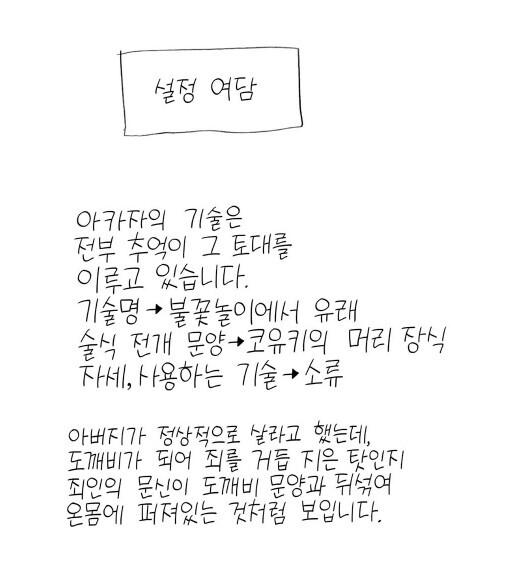 설정 여담
아카자의 기술은
전부 추억이 그 토대를
이루고 있습니다.
기술명→불꽃놀이에서 유래
술식 전개 문양→코유키의 머리 장식
자세, 사용하는 기술→소류
아버지가 정상적으로 살라고 했는데,
도깨비가 되어 죄를 거듭 지은 탓인지
죄인의 문신이 도깨비 문양과 뒤섞여
온몸에 퍼져있는 것처럼 보입니다.